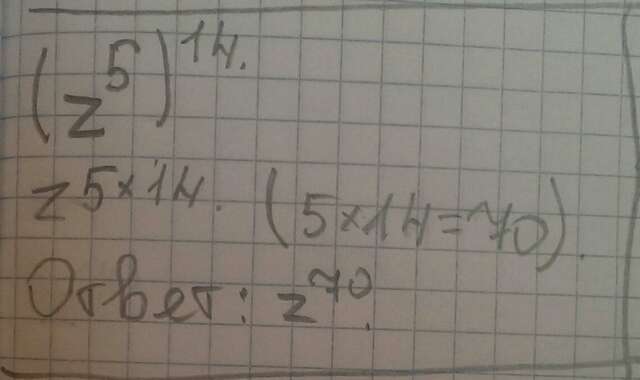 (z⁵)¹⁴.
z⁵ˣ¹⁴. (5×14=70).
Ответ: z⁷⁰.